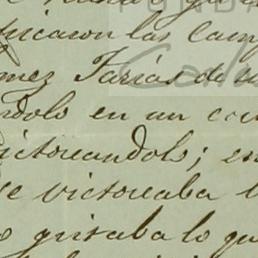 picaron las camp
mez Farias de
ndolo en un coc
ictoreandolo; en
e victoreaba
gritaba lo qu